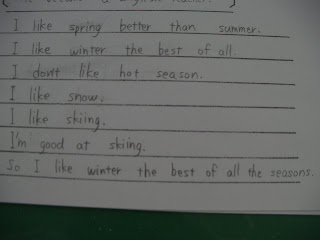 I like spring better than summer.
I like winter the best of all.
I don't like hot season.
I like snow.
I like skiing.
I'm good at skiing.
So I like winter the best of all the seasons.